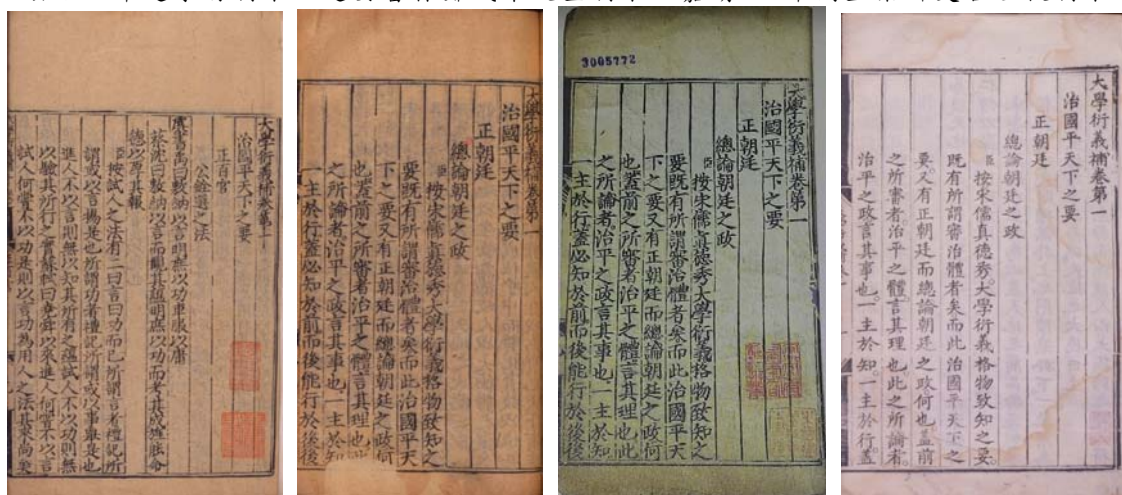 大學衍義補卷第十
治國平天下之要
正百官
公銓選之法
虞書禹曰敷納以言明庶以功車服以庸
蔡沈曰敷納以言而觀其蘊明庶以功而考其成旌能命
德以厚其報
臣按試人之法有二曰言曰功而已所謂言者禮記所
謂或以言揚是也所謂功者禮記所謂或以事舉是也
進人不以言則無以知其所有之蘊試人不以功則無
以驗其所行之實蘇軾曰堯舜以來進人何嘗不以言
試人何嘗不以功是則以言功為用人之法其來尚矣
大學衍義補卷第一
治國平天下之要
正朝廷
總論朝廷之政
臣按宋儒真德秀大學衍義格物致知之
要既有所謂審治體者矣而此治國平天
下之要又有正朝廷而總論朝廷之政何
也蓋前之所審者治平之體言其理也此
之所論者治平之政言其事也一主於知
一主於行蓋必知於前而後能行於後後
3005772
大學衍義補卷第一
治國平天下之要
正朝廷
總論朝廷之政
臣按宋儒真德秀大學衍義格物致知之
要既有所謂審治體者矣而此治國平天
下之要又有正朝廷而總論朝廷之政何
也蓋前之所審者治平之體言其理也此
之所論者治平之政言其事也一主於知
一主於行蓋必知於前而後能行於後後
大學衍義補卷第一
治國平天下之要
正朝廷
總論朝廷之政
臣按宋儒真德秀大學衍義格物致知之要
既有所謂審治體者矣而此治國平天下之
要又有正朝廷而總論朝廷之政何也蓋前
之所審者治平之體言其理也此之所論者
治平之政言其事也一主於知一主於行蓋